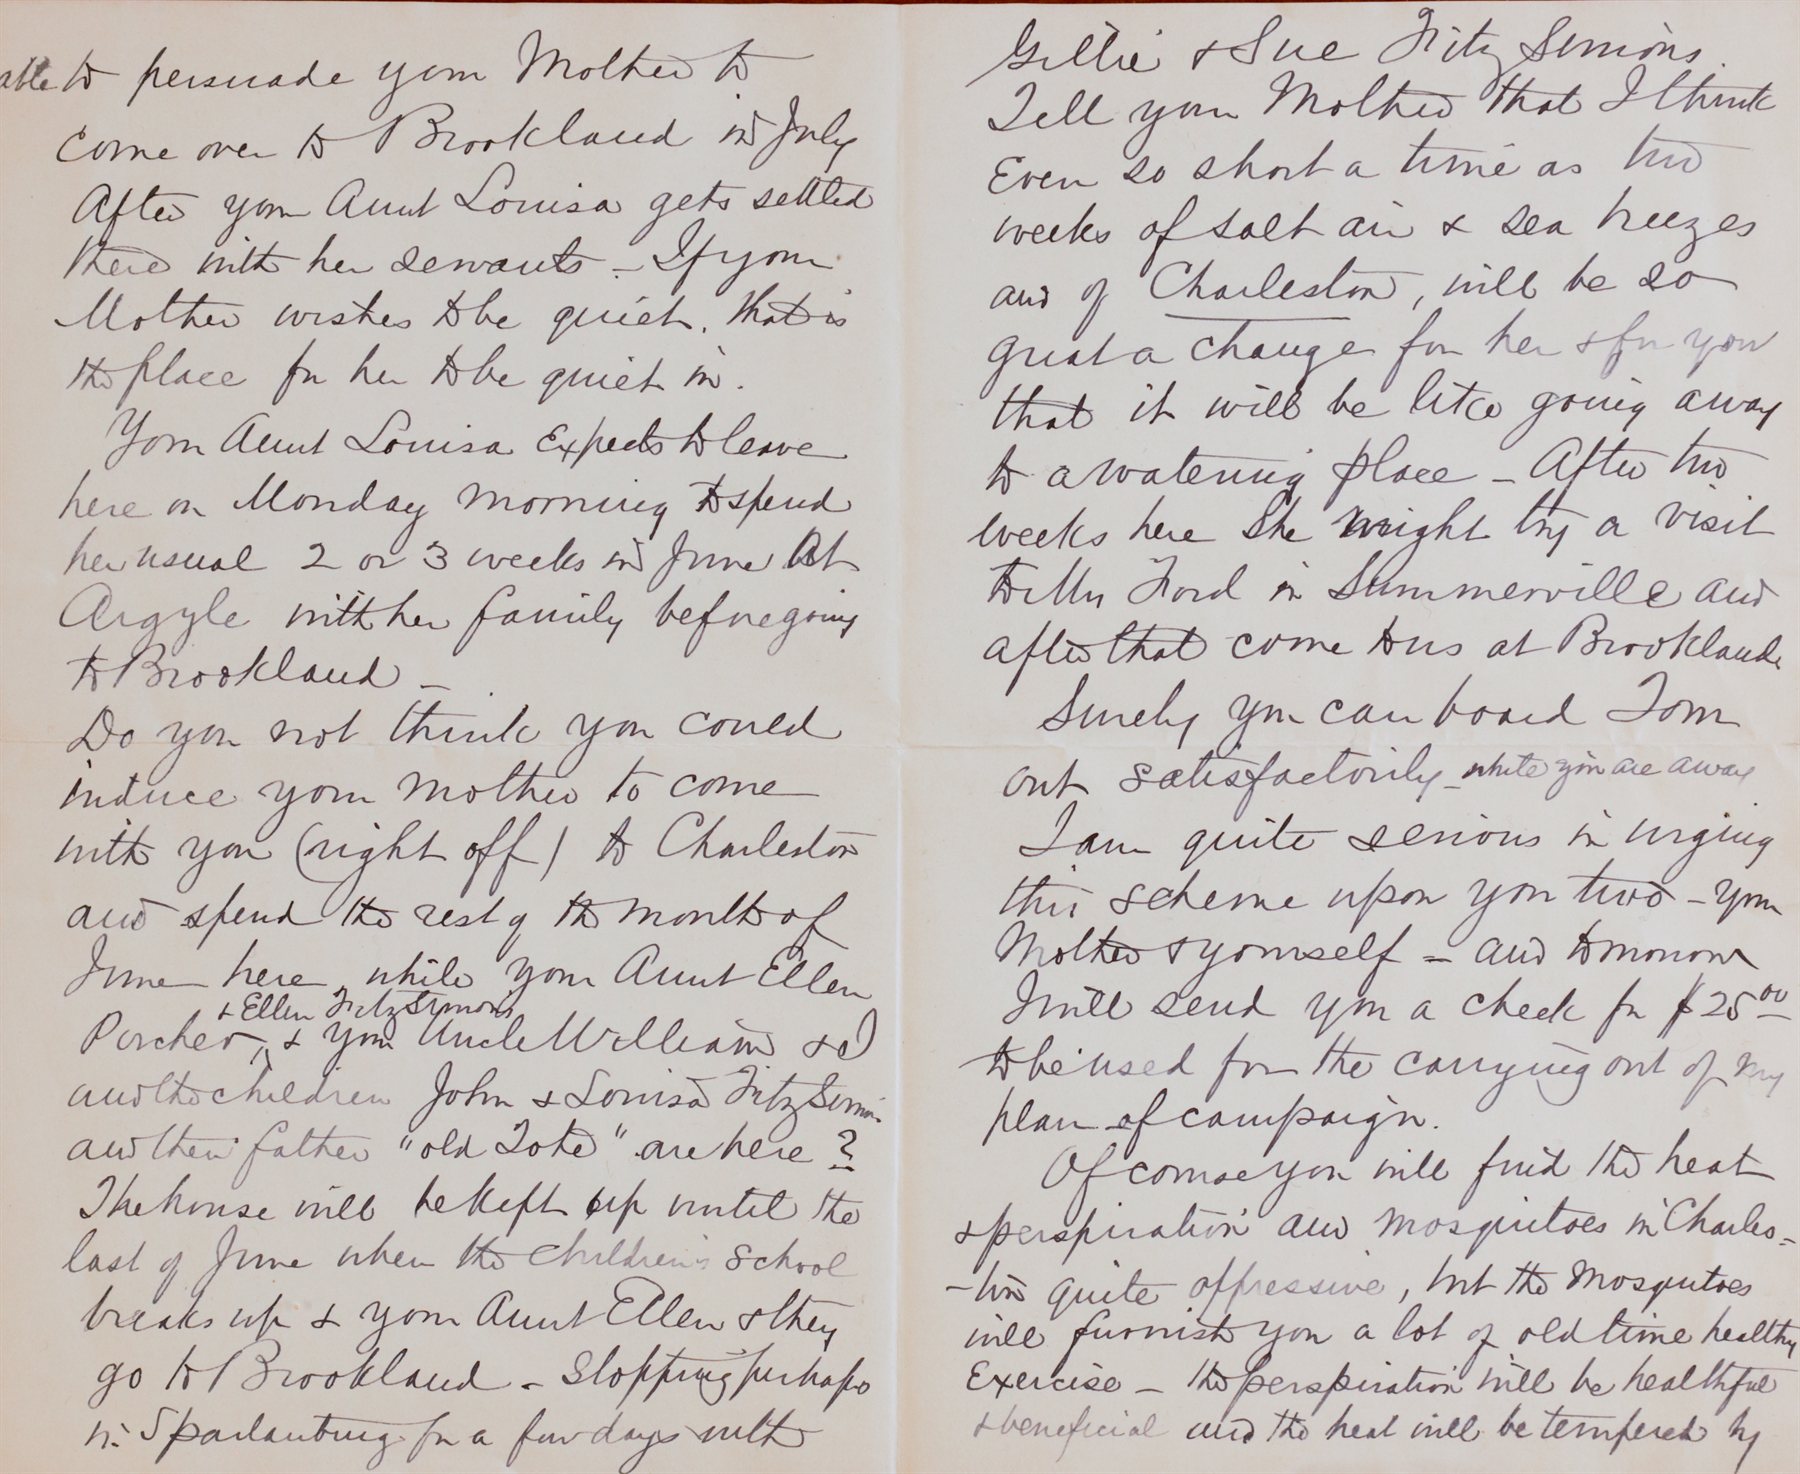 able to persuade your Mother to
come over to Brookland in July
After your Aunt Louisa gets settled
there with her servants - If your
Mother wishes to be quiet, that is
the place for her to be quiet in.
Your Aunt Louisa Expects to leave
here on Monday morning to spend
her usual 2 or 3 weeks in June at
Argyle with her family before going
to Brookland -
Do you not think you could
induce your Mother to come
with you (right off) to Charleston
and spend the rest of the month of
June here, while your Aunt Ellen
& Ellen FitzSimons
Porcher, & your Uncle William &c
and the children John & Louisa FitzSimons
and their father "old Tote" are here?
The house will be kept up until the
last of June when the children's school
breaks up & your Aunt Ellen & they
go to Brookland - stopping perhaps
in Spartanburg for a few days with
Gillie & Sue FitzSimons.
Tell your Mother that I think
Even so short a time as two
weeks of salt air & sea breezes
and of Charleston, will be so
great a change for her & for you
that it will be like going away
to a watering place - After two
weeks here she might try a visit
to Mr Ford in Summerville and
after that come to us at Brookland.
Surely you can board Tom
out satisfactorily - while you are away
I am quite serious in urging
this scheme upon you two - your
Mother & yourself - and tomorrow
I will send you a check for $25.00
to be used for the carrying out of my
plan of campaign.
Of course you will find the heat
& perspiration and mosquitoes in Charles-
-ton quite oppressive, but the mosquitoes
will furnish you a lot of old time healthy
Exercise - the perspiration will be healthful
& beneficial and the heat will be tempered by